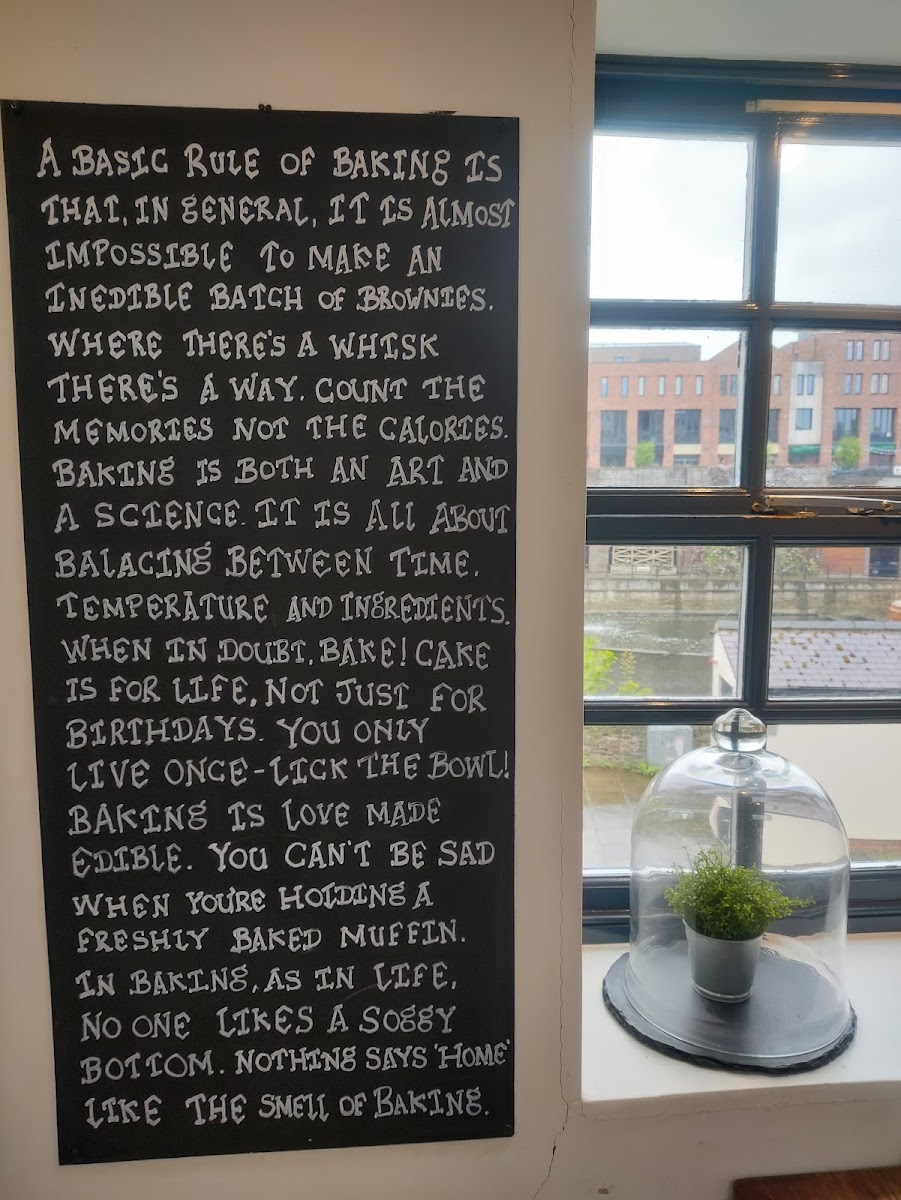 A BASIC RULE OF BAKING IS
THAT, IN GENERAL, IT IS ALMOST
IMPOSSIBLE TO MAKE AN
INEDIBLE BATCH OF BROWNIES.
WHERE THERE'S A WHISK
THERE'S A WAY. COUNT THE
MEMORIES NOT THE CALORIES.
BAKING IS BOTH AN ART AND
A SCIENCE. IT IS ALL ABOUT
BALACING BETWEEN TIME,
TEMPERATURE AND INGREDIENTS.
WHEN IN DOUBT, BAKE! CAKE
IS FOR LIFE, NOT JUST FOR
BIRTHDAYS. YOU ONLY
LIVE ONCE - LICK THE BOWL!
BAKING IS LOVE MADE
EDIBLE. YOU CAN'T BE SAD
WHEN YOU'RE HOLDING A
FRESHLY BAKED MUFFIN.
IN BAKING, AS IN LIFE,
NO ONE LIKES A SOGGY
BOTTOM. NOTHING SAYS 'HOME'
LIKE THE SMELL OF BAKING.